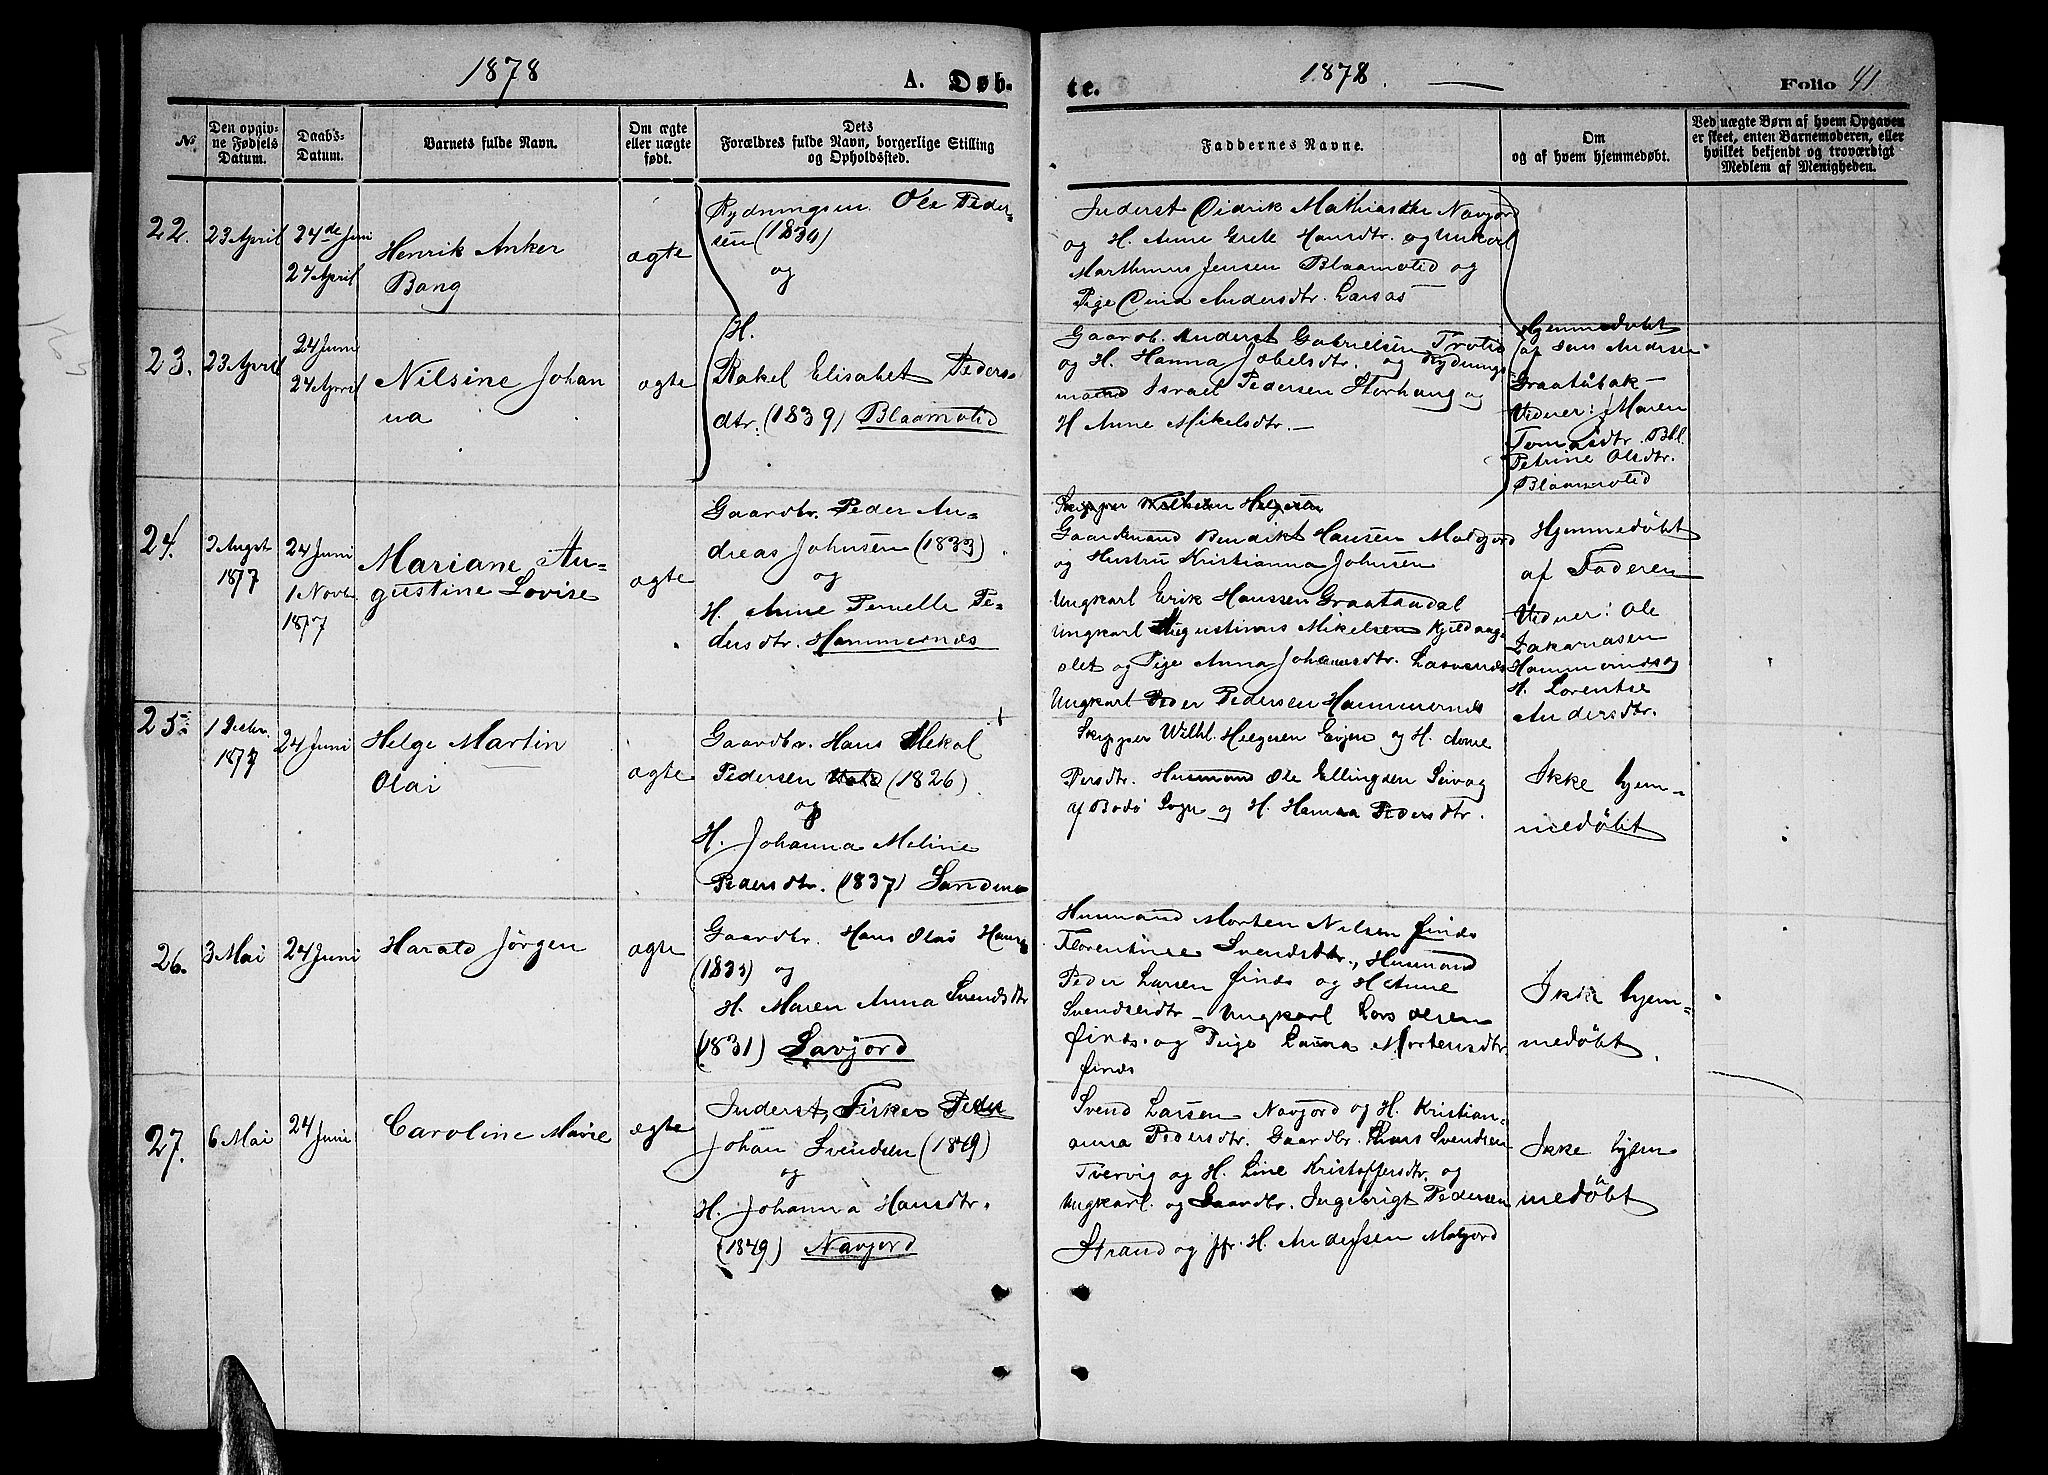 1878
A. Døb-
№
Den opgiv-
ne Fødsels
Datum.
Daabs-
Datum.
Barnets fulde Navn.
Om ægte
eller uægte
født.
Dets
Forældres fulde Navn, borgerlige Stilling
og Opholdssted.
22.
23 April
24de Juni
27 April
Henrik Anker
Bang
ægte
Rydningsm. Ole Peder-
sen (1830)
og
23.
23 April
24 Juni
24 April
Nilsine Johan
na
ægte
H.
Rakel Elisabet Peders-
dtr. (1839) Blaamolid
24.
3 Augst
1877
24 Juni
1 Novb.
1877
Mariane Au-
gustine Lovise
ægte
Gaardbr. Peder An-
dreas Johnsen (1833)
og
H. Anne Pernelle Pe-
dersdtr. Hammernæs
25.
1 Decbr.
1877
24 Juni
Helge Martin
Olai
ægte
Gaardbr. Hans Mekal
Pedersen (1826)
og
H. Johanna Meline
Pedersdtr. (1837)
26.
3 Mai
24 Juni
Harald Jørgen
ægte
Gaardbr. Hans Olai Hans
(1833) og
H. Maren Anna Svendsdtr
(1831) Savjord
27.
6 Mai
24 Juni
Caroline Marie
ægte
Inderst, Fisker Peder
Johan Svendsen (1849)
og
H. Johanna Hansdtr.
(1849) Navjord
te.
1878.
Folio 41
Faddernes Navne.
Om
og af hvem hjemmedøbt.
Ved uægte Børn af hvem Opgaven
er skeet, enten Barnemoderen, eller
hvilket bekjendt og troværdigt
Medlem af Menigheden.
Inderst Didrik Navjord
og H. Anne Grete Hansdtr. og Unkarl
Marthinus Jensen Blaamolid og
Pige Andersdtr.
Gaardb. Anderst Gabrielsen
og H. Hanna Jobelsdtr. og Rydnings
mand Israel Pedersen Storhaug og
H Anne Mikelsdtr. —
Hjemmedøbt
af Jens Andersen
Vidner: Maren
Tomasdtr.
Petrine Olsdtr.
Blaamolid
Skipper Wilhelm Helgesen
Gaardmand Bendikt Hansen
og Hustru Kristianna Johnsen
Ungkarl Erik Hanssen Graataadal
Ungkarl Augustinus Mikelsen
og Pige Anna Johannsdtr.
Ungkarl Peder Pedersen Hammernæs
Hjemmedøbt
af Faderen
Vidner: Ole
Hammernæs og
H. Lorentse
Andersdtr.
Skipper Wilhl. Helgesen Evjen og H. Anne
Persdtr. Husmand Ole Ellingsen Seivag
af Bodø Sogn og H. Hanna Pedersdtr.
Ikke hjem-
medøbt
Husmand Morten Nilsen finds
Florentine Svendsdtr., Husmand
Peder Larsen finds og H Anne
Svendsdtr — Ungkarl Lars Olsen
finds. og Pige Laura Mortensdtr
finds
Ikke hjem-
medøbt.
Svend Larsen Navjord og H. Kristian-
anna Pedersdtr. Gaardbr. Hans Svendsen
Tvervig og H. Line Kristoffersdtr. og
Ungkarl. og Gaardbr. Ingebrigt Pedersen
Strand og jfr. H. Anderssen
Ikke hjem
medøbt